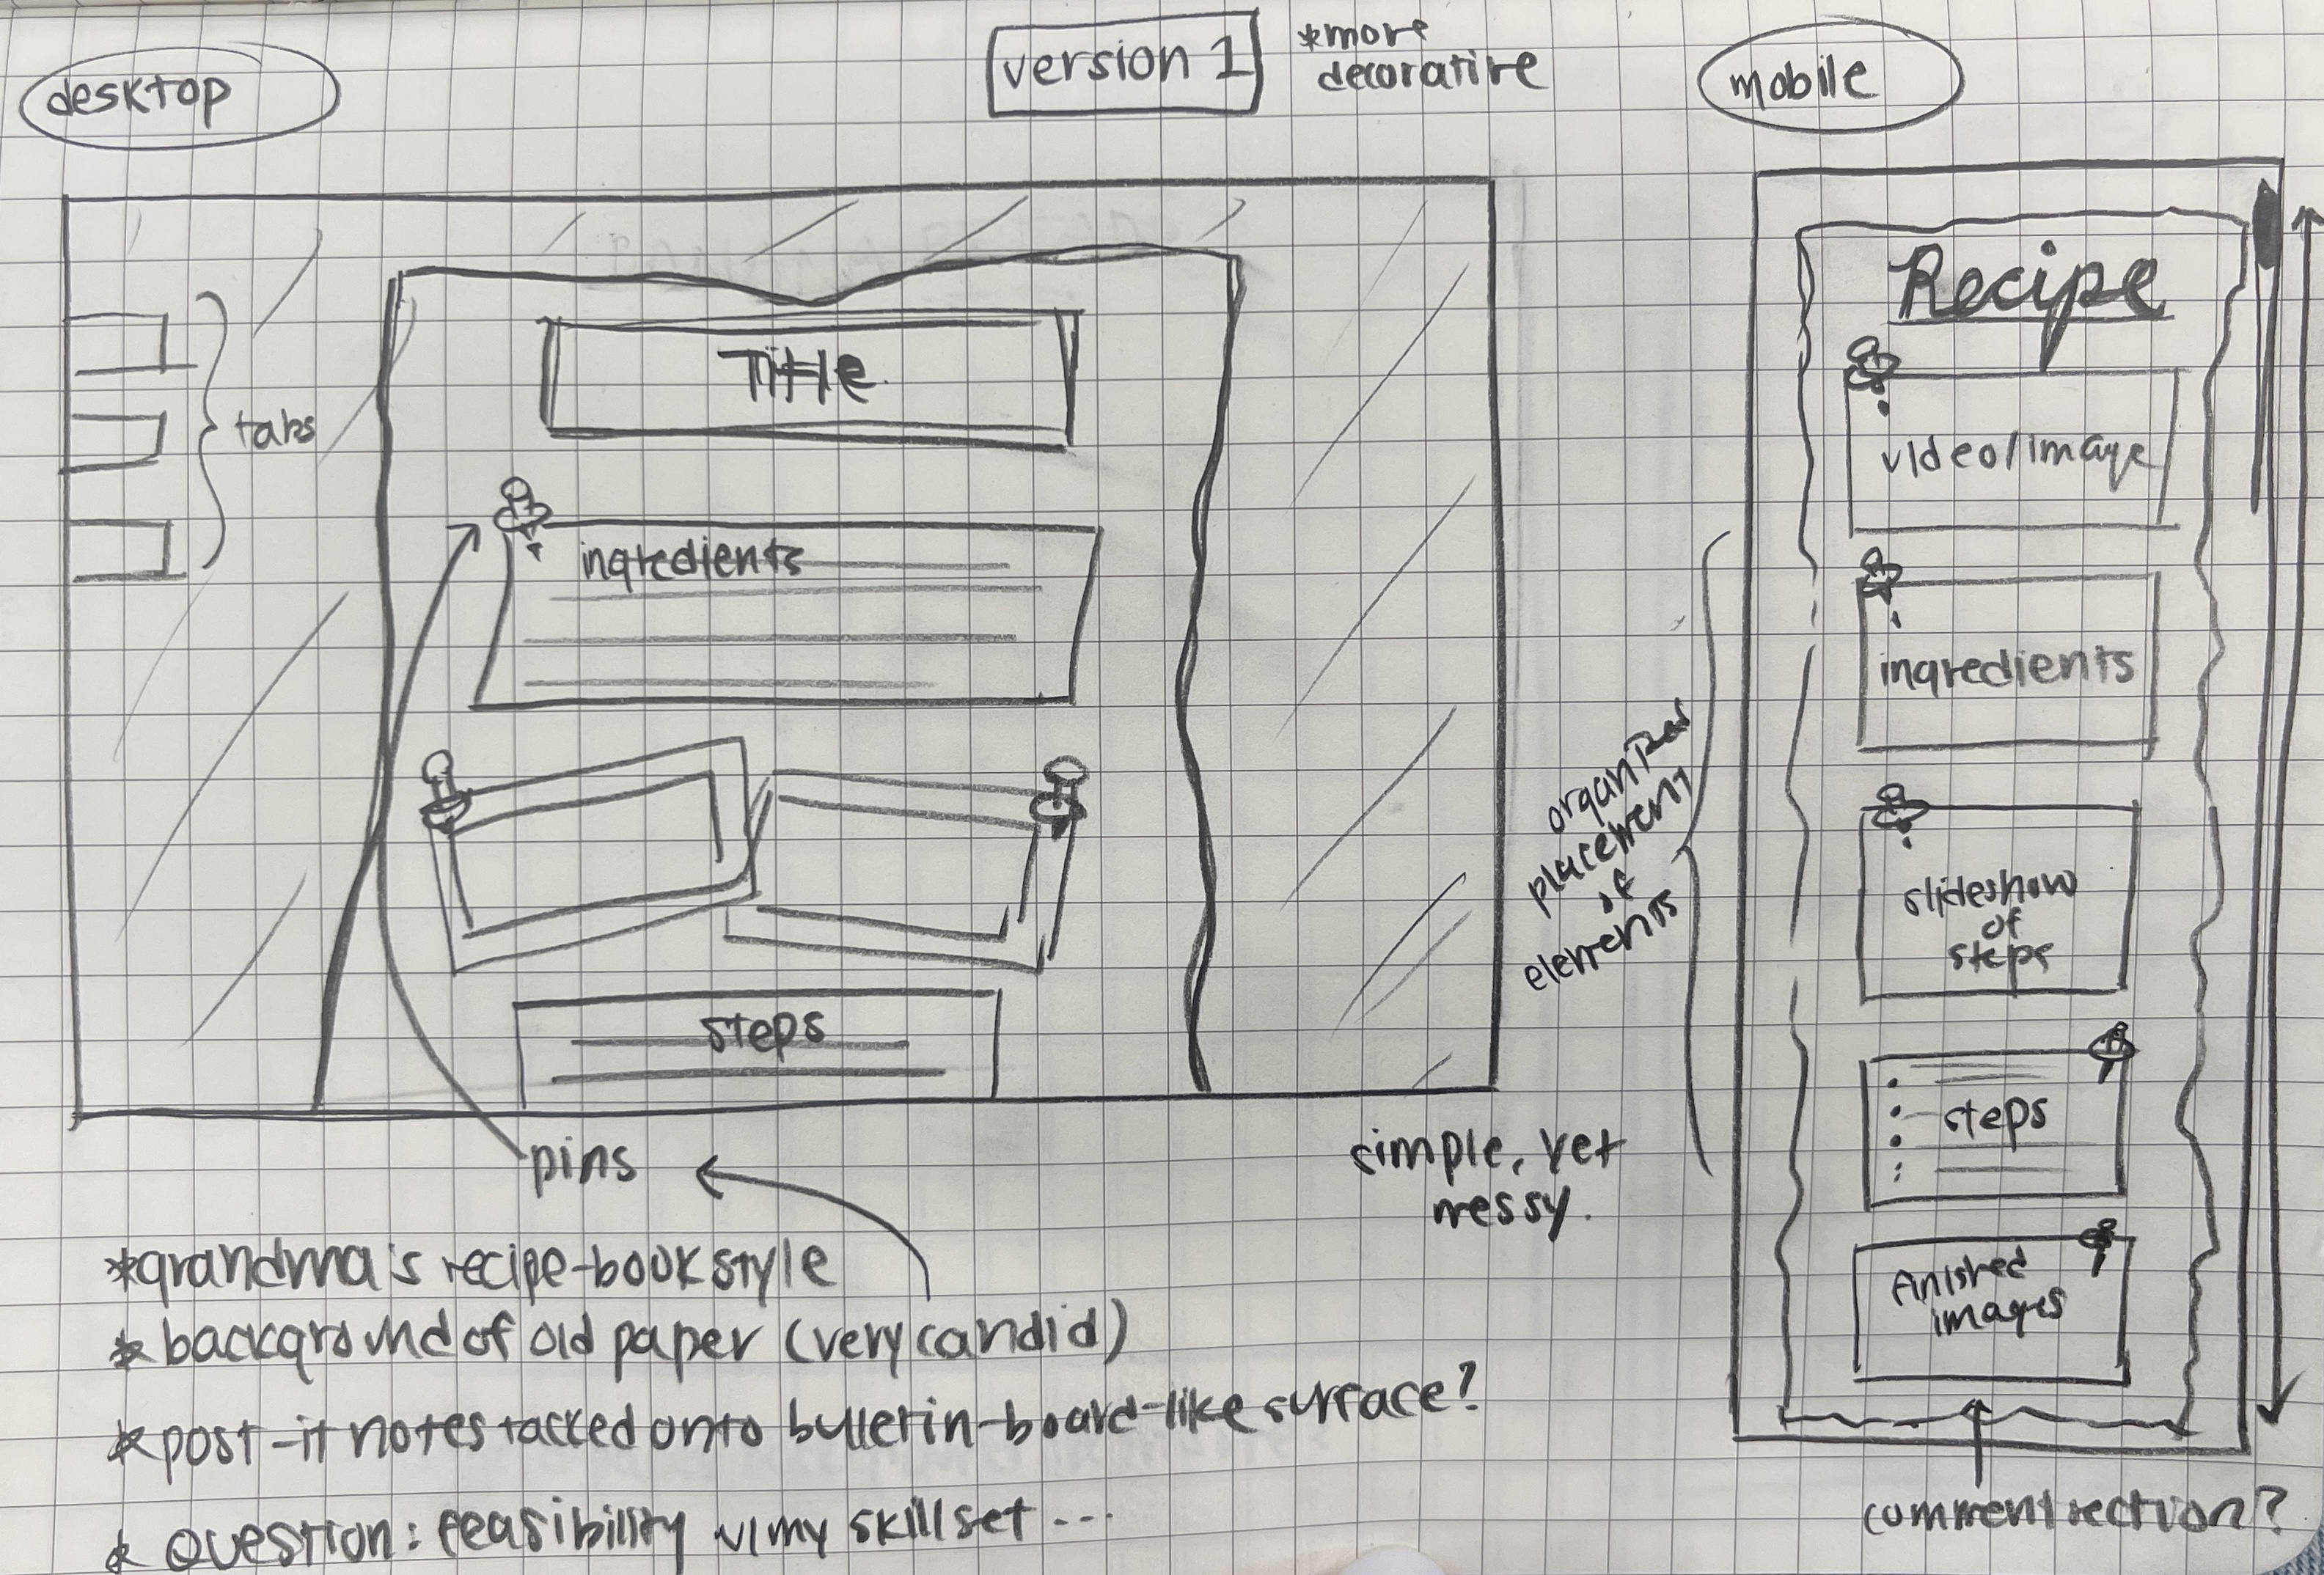 desktop
version 1
*more
decorative
mobile
tabs
Title
ingredients
steps
pins
Recipe
video/image
ingredients
slideshow
of
steps
steps
finished
images
organized
placement
of
elements
simple, yet
messy.
*grandma's recipe-book style
*background of old paper (very candid)
*post-it notes tacked onto bulletin-board-like surface?
* Question: feasibility w/my skillset ...
comment section?